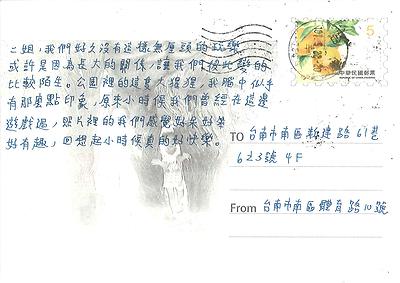 二姐，我們好久沒有這樣無厘頭的歡樂
或許是因為長大的關係，讓我們彼此變的
比較陌生。公園裡的這隻大猩猩，我腦中似乎
有那麼點印象，原來小時候我們曾經在這邊
遊戲過，照片裡的我們感覺好呆好笨
好有趣，回想起小時候真的好快樂。
5
中華民國郵票
TO 台南市南區新建路61巷
623號 4F
From 台南市南區體育路10號